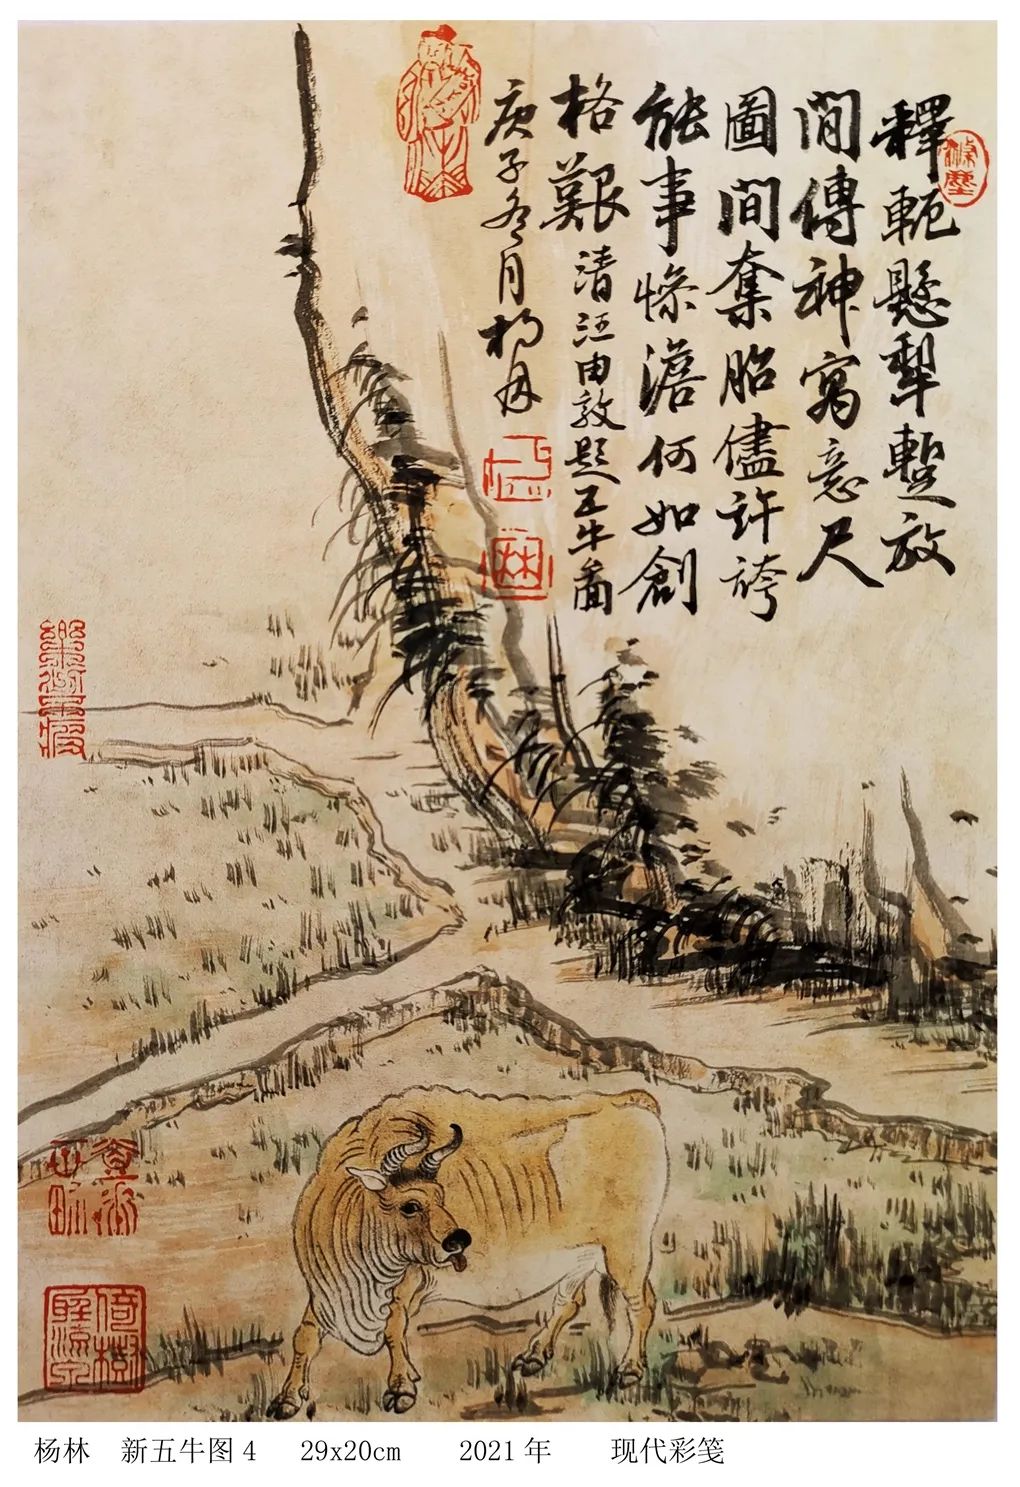 釋軛懸犁蹔放
閒傳神寫意尺
圖間奪胎儘許誇
能事慘澹何如創
格艱
清汪由敦題五牛圖
庚子冬月楊林
滌塵
倚樹聽流泉
杨林 新五牛图4 29x20cm 2021年 现代彩笺